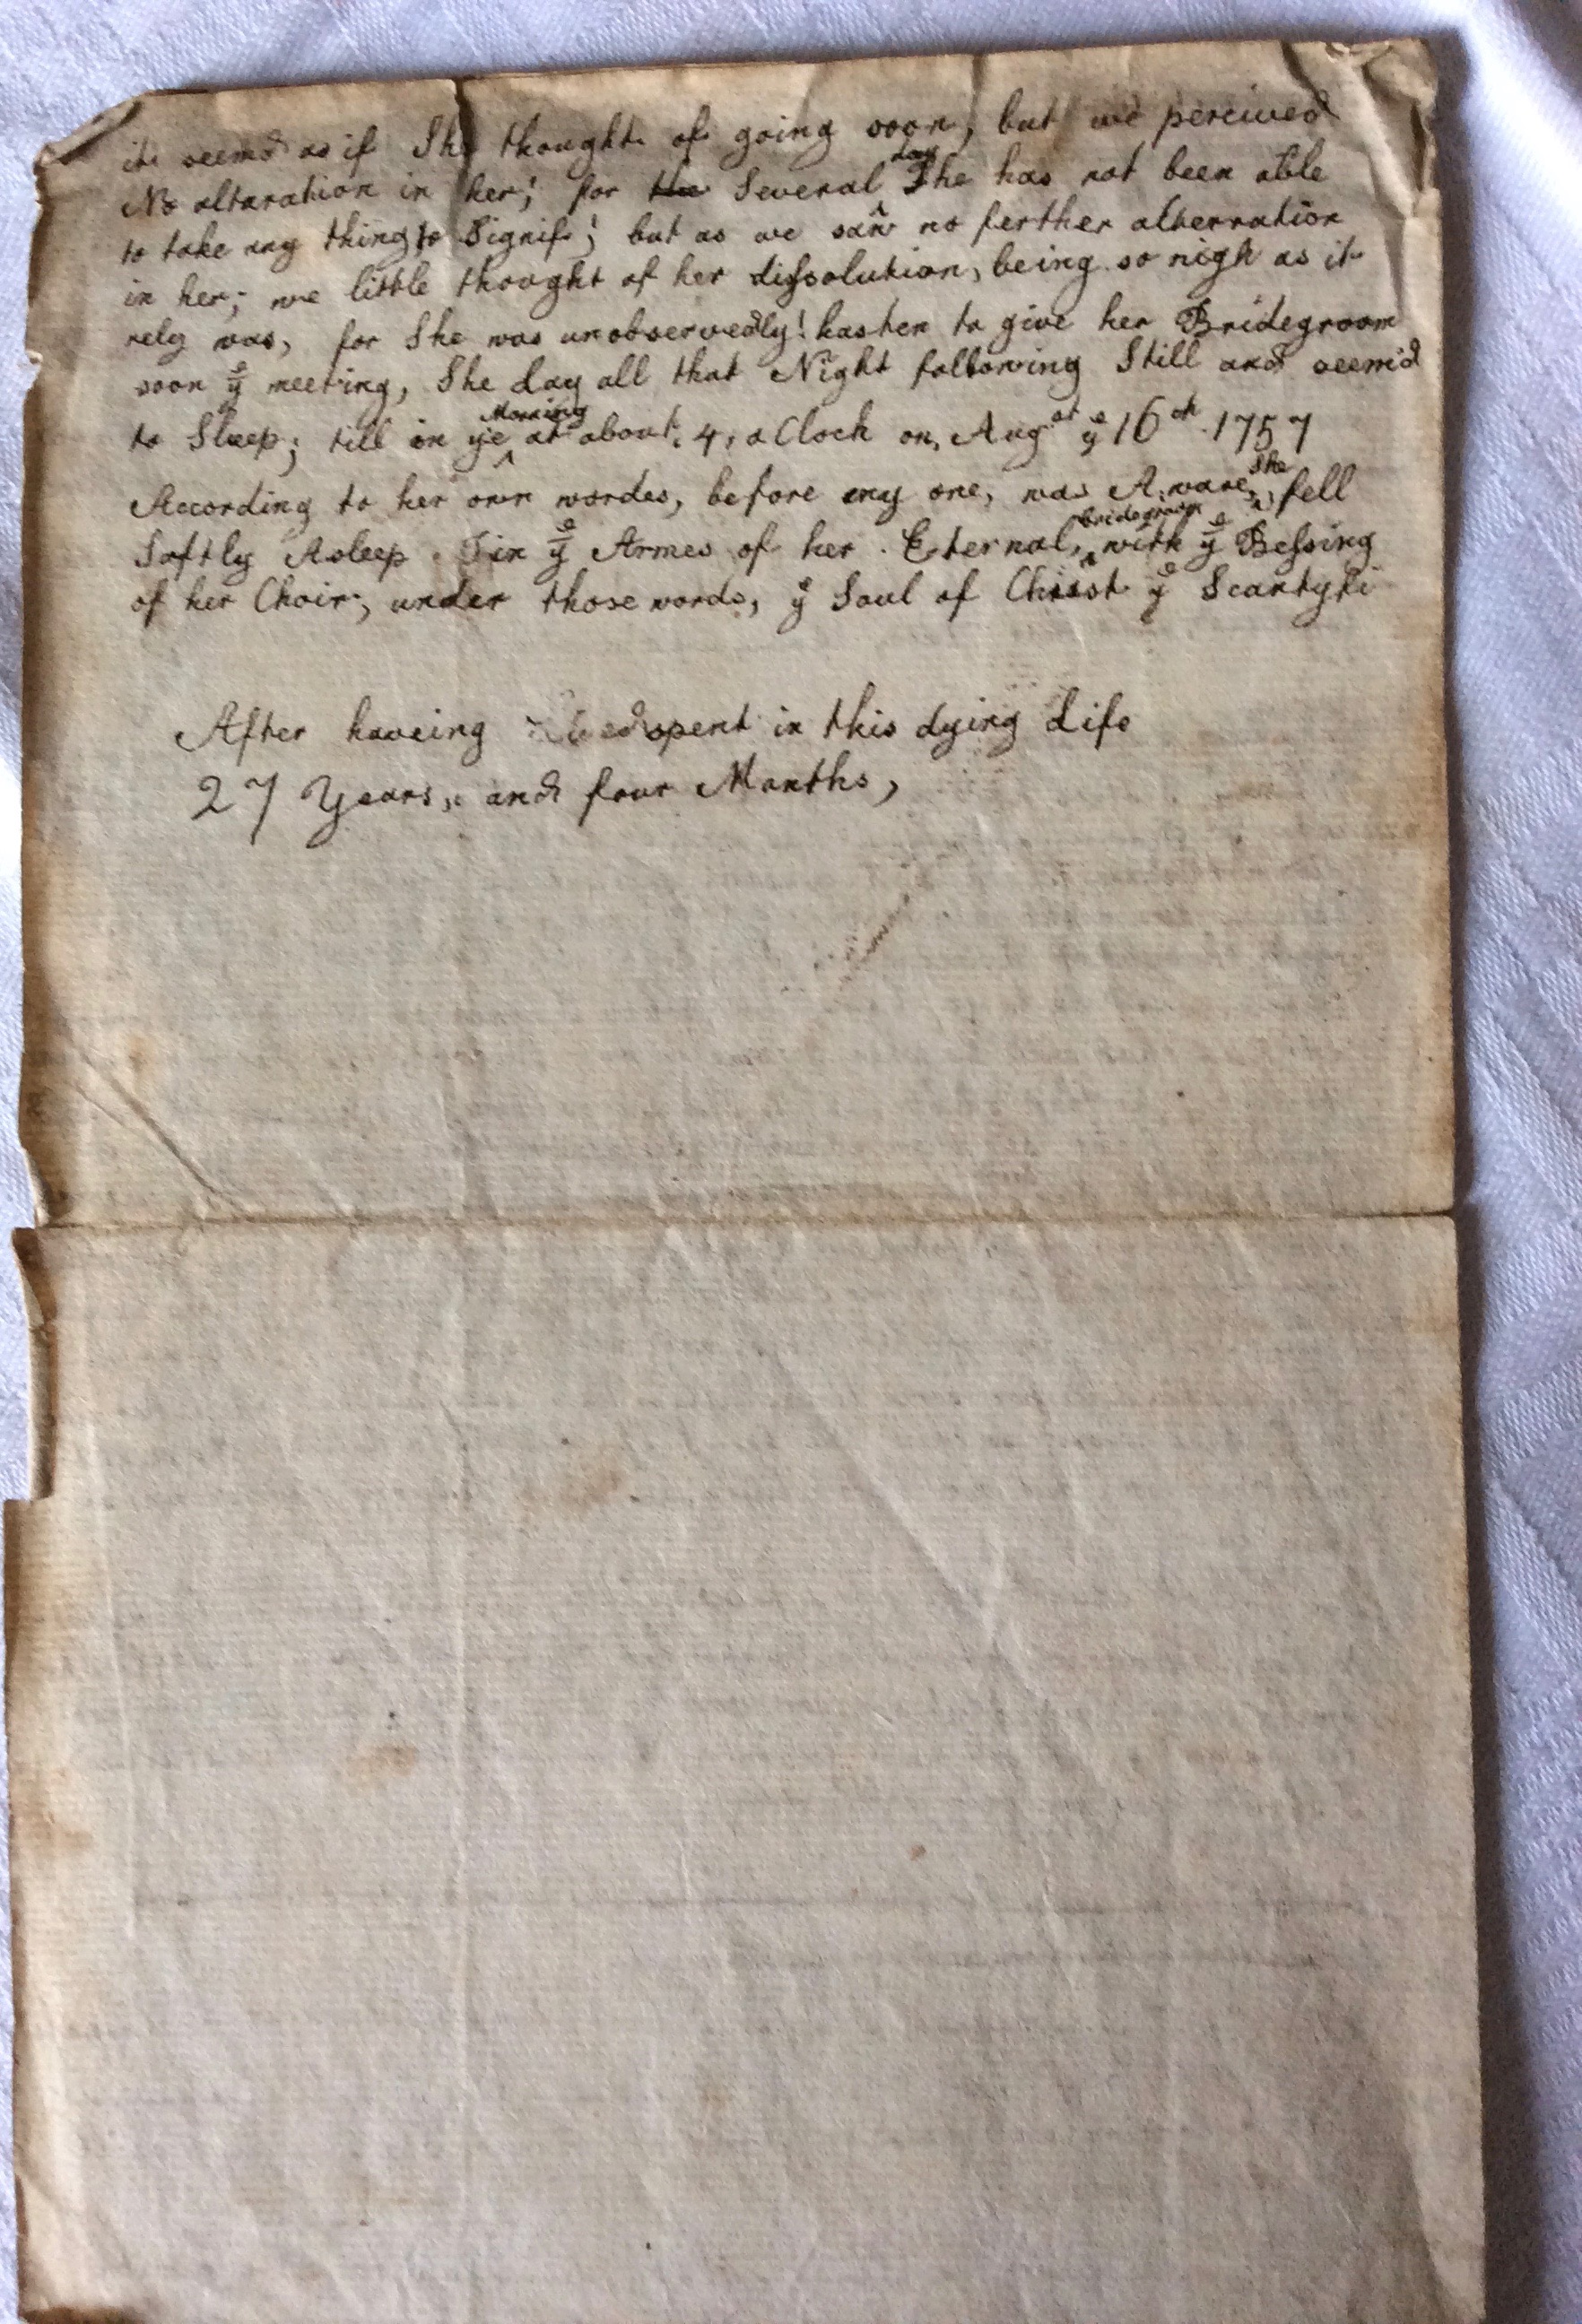 it seemd as if She thought of going soon, but we perceived
No altaration in her; for the Several day She has not been able
to take any thing to Signif; but as we saw no ferther alterration
in her; we little thought of her dissolution, being so nigh as it
rely was, for She was unobservedly! hasten to give her Bridegroom
soon ye meeting, She Lay all that Night following Still and seem'd
to Sleep; till in ye Morning at about, 4, a Clock on, Augst ye 16th 1757
According to her own wordes, before eny one, was Aware, She fell
Softly Asleep in ye Armes of her Eternal, bridegroom with ye Bessing
of her Choir, under those words, ye Soul of Christ ye Scantyfi
After haveing spent in this dying Life
27 Years, and four Months,